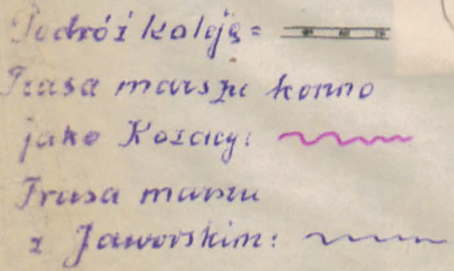 Podróż koleją =
Trasa marszu konno
jako Kozacy:
Trasa marszu
z Jaworskim: